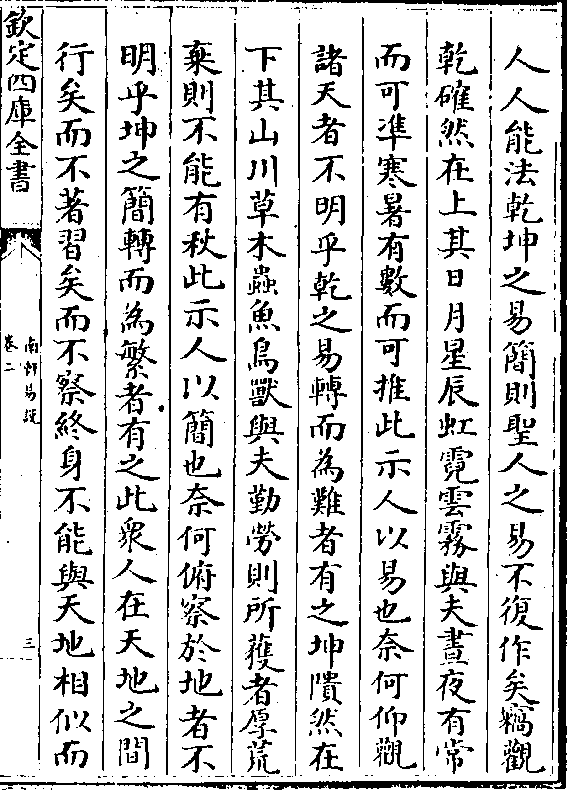 人人能法乾坤之易簡則聖人之易不復作矣竊觀
乾確然在上其日月星辰虹霓雲霧與夫晝夜有常
而可準寒暑有數而可推此示人以易也奈何仰觀
諸天者不明乎乾之易轉而為難者有之坤隤然在
下其山川草木蟲魚鳥獸與夫勤勞則所獲者厚荒
棄則不能有秋此示人以簡也奈何俯察於地者不
明乎坤之簡轉而為繁者有之此衆人在天地之間
行矣而不著習矣而不察終身不能與天地相似而
欽定四庫全書
南軒易說
卷二
三